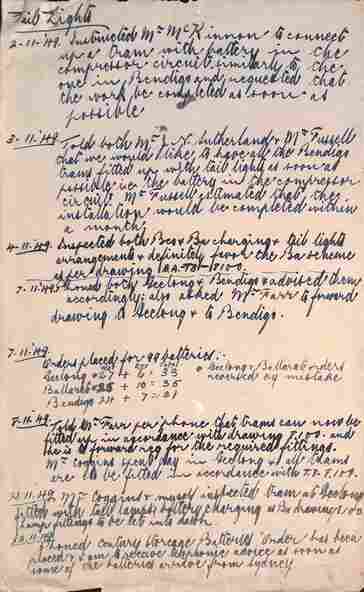 Tail Lights
2-11-49. Instructed Mr McKinnon to connect
up a tram with battery in the
compressor circuit similarly to the
one in Bendigo and requested that
the work be completed as soon as
possible
3-11-49 Told both Mr J.N. Sutherland & Mr Fussell
that we would like to have all the Bendigo
trams fitted up with tail lights as soon as
possible i.e. the battery in the compressor
circuit Mr Fussell estimated that the
installation would be completed within
a month
4-11-49. Inspected both Beo & Ba charging & tail lights
arrangement & definitely favor the Ba scheme
as per drawing
7-11-49 Phoned both Geelong & Bendigo & advised them
accordingly; also asked Mr Farr to forward
drawing to Geelong & to Bendigo.
7-11-49
Orders placed for 99 batteries:-
Geelong 27 + 6 = 33 Geelong & Ballarat orders
Ballarat 25 + 10 = 35 reversed by mistake
Bendigo 24 + 7 = 31
8-11-49 Told Mr Farr per phone that trams can now be
fitted up in accordance with drawing T.100. and
he is to forward req for the required fittings.
Mr Coggins spent day in Geelong & all trams
are to be fitted in accordance with T.100.
Mr Coggins & myself inspected tram at Geelong
fitted with tail lamps & battery charging as
lamp fittings to be let into dash
Phoned Century Storage Batteries Order has been
placed & I am to receive telephonic advice as soon as
some of the batteries arrive from Sydney